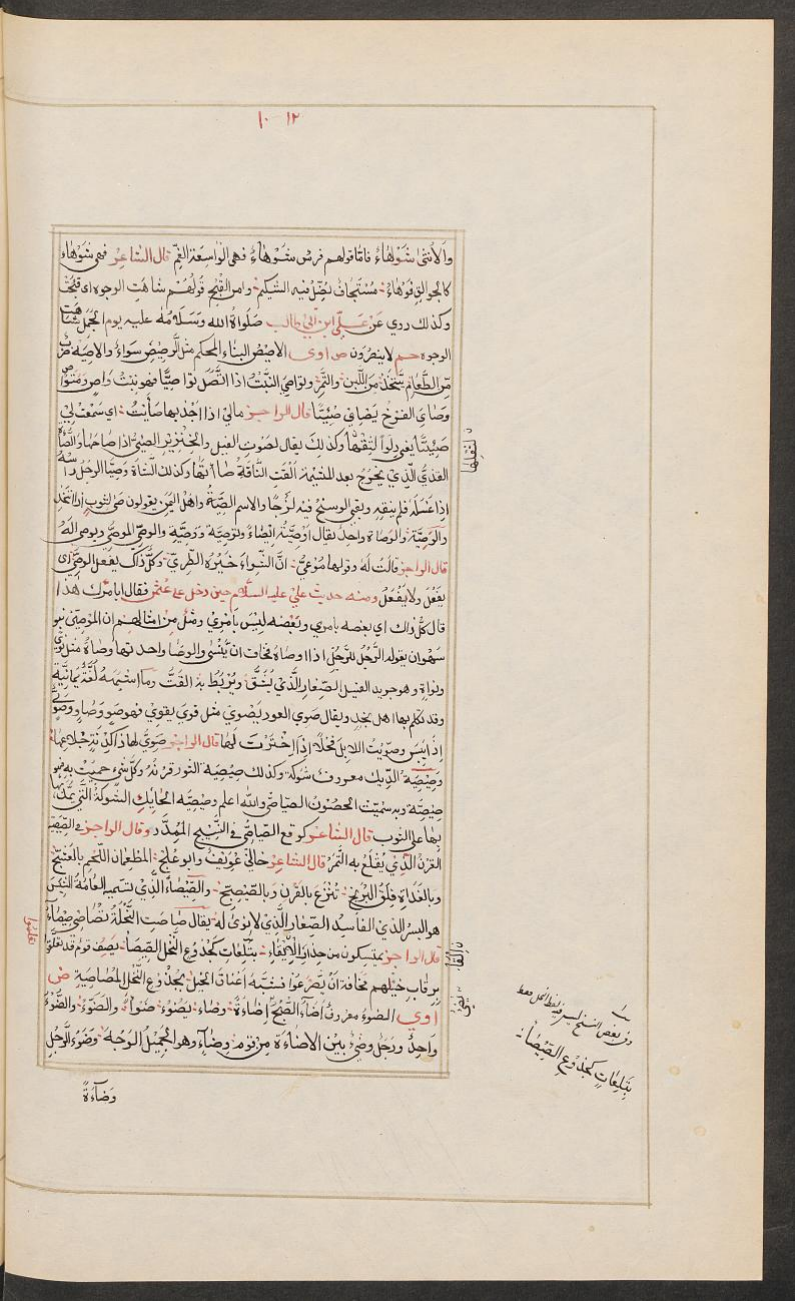 ١٢ ١٠
والانثى شوهاء فاما قولهم فرس شوهاء فهى الواسعة الفم قال الشاعر فهى شوهاء
كالجوالق فوهاء مستجاف يضل فيه الشكيم وامر القبح قولهم شاهت الوجوه اى قبحت
وكذلك روي عن علي ابن ابي طالب صلواة الله وسلامه عليه يوم الجمل شاهت
الوجوه حم لاينصرون ص اوى الاصيص البناء المحكم مثل الرصيص سواء والاصيه ضرب
من الطعام يتخذ من اللبن والتمر وتواصي النبت اذا اتصل تواصيا فهو نبت واص ومتواص
وصاى الفرخ يصاى صئيا قال الراجز مالي اذا اجذبها صأيت اى سمعت لي
صئيا يعني دلوا لثقلها وكذلك يقال لصوت الفيل والخنزير الصئى اذا صاحا والصاة
القذى الذي يخرج بعد المشيمة القت الناقة صاتها وكذلك الشاة وصيا الرجل راسه
اذا غسله فلم ينقه وبقي الوسخ فيه لزجا والاسم الصية واهل اليمن يقولون صى الثوب اذا اتخذ
والوصية والوصاة واحد يقال اوصيته ايصاء وتوصية ووصية والوصى الموصى ويوصى اليه
قال الراجز قالت له وقولها موعي ان الشواء خيره الطري وكل ذاك يفعل الوصى اى
يفعل ولا يفعل ومنه حديث علي عليه السلام حين دخل على عثمن فقال ابامرك هذا
قال كل ذلك اي بعضه بامري وبعضه ليس بامري ومثل من امثالهم ان الموصين بنو
سهوان يقوله الرجل للرجل اذا اوصاه مخاف ان ينسى والوصا واحدتها وصاة مثل نوى
ونواة وهو جريد الفسيل الصغار الذي يشقق ويربط به القت وما اشبهه لغة يمانية
وقد تكلم بها اهل نجد ويقال صوي العود يصوي مثل قوي يقوي فهو صو وصاو وصوى
اذا يبس وصويت للابل فحلا اذا اخترت لها قال الراجز صوى لها ذا كدنة جلاعها
وصيصية الديك معروف شوكة وكذلك صيصية الثور قرنه وكل شيء حميت به فهو
صيصية وبه سميت الحصون الصياصى والله اعلم وصيصية الحايك الشوكة التي يمد
بها على الثوب قال الشاعر كوقع الصياصي في النسيج الممدد وقال الراجز في الصيصية
القرن الذي يقلع به التمر قال الشاعر خالي عويف وابو علج المطعمان اللحم بالعشج
وبالغداة فلق البرنج تنزع بالقرن وبالصيصج والصيصاء الذي تسميه العامة الشيص
هو البسر الذي الفاسد الصغار الذي لا نوى له يقال صاصت النخلة تصاصى صيصاء
قال الراجز يمتسكون من حذار الالقاء بتلعات كجذوع النخل الصيصاء يصف قوم قد تعلقوا
برقاب خيلهم مخافة ان يصرعوا فشبه اعناق الخيل بجذوع النخل المصاصية ض
اوي الضوء معروف اضاء الصبح اضاءة وضاء يضوء ضواء والضوء والضوء
واحد ورجل وضئ بين الاضاءة من قوم وضاء وهو الجميل الوجه وضوء الرجل
وضاءة
لثقلها
تعلقوا
وفى بعض النسخ
بتلعات كجذوع الصيصاء